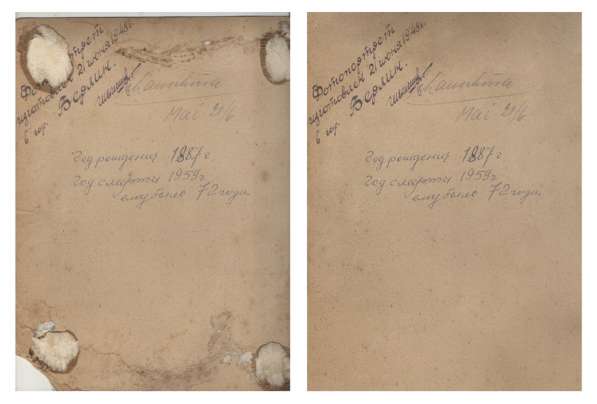 Фотопортрет
изготовлен 21 июня 1948г.
в гор. Берлин.
Mai 21/6
Год рождения 1887 г
Год смерти 1959г.
ему было 72 года.
Фотопортрет
изготовлен 21 июня 1948г.
в гор. Берлин.
Mai 21/6
Год рождения 1887 г
Год смерти 1959г.
ему было 72 года.